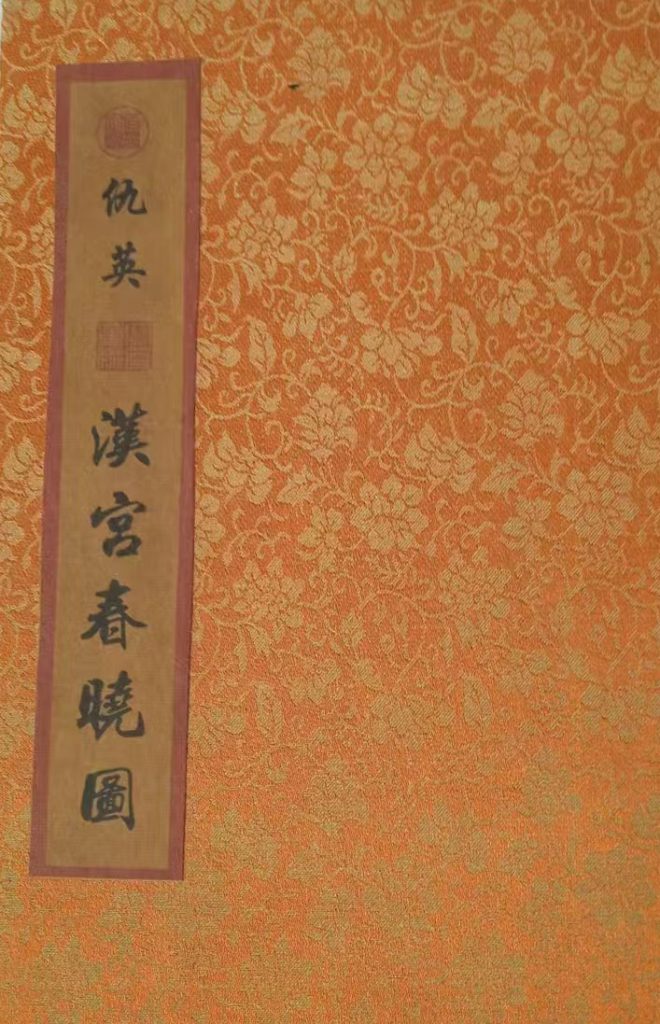 仇英
漢宮春曉圖